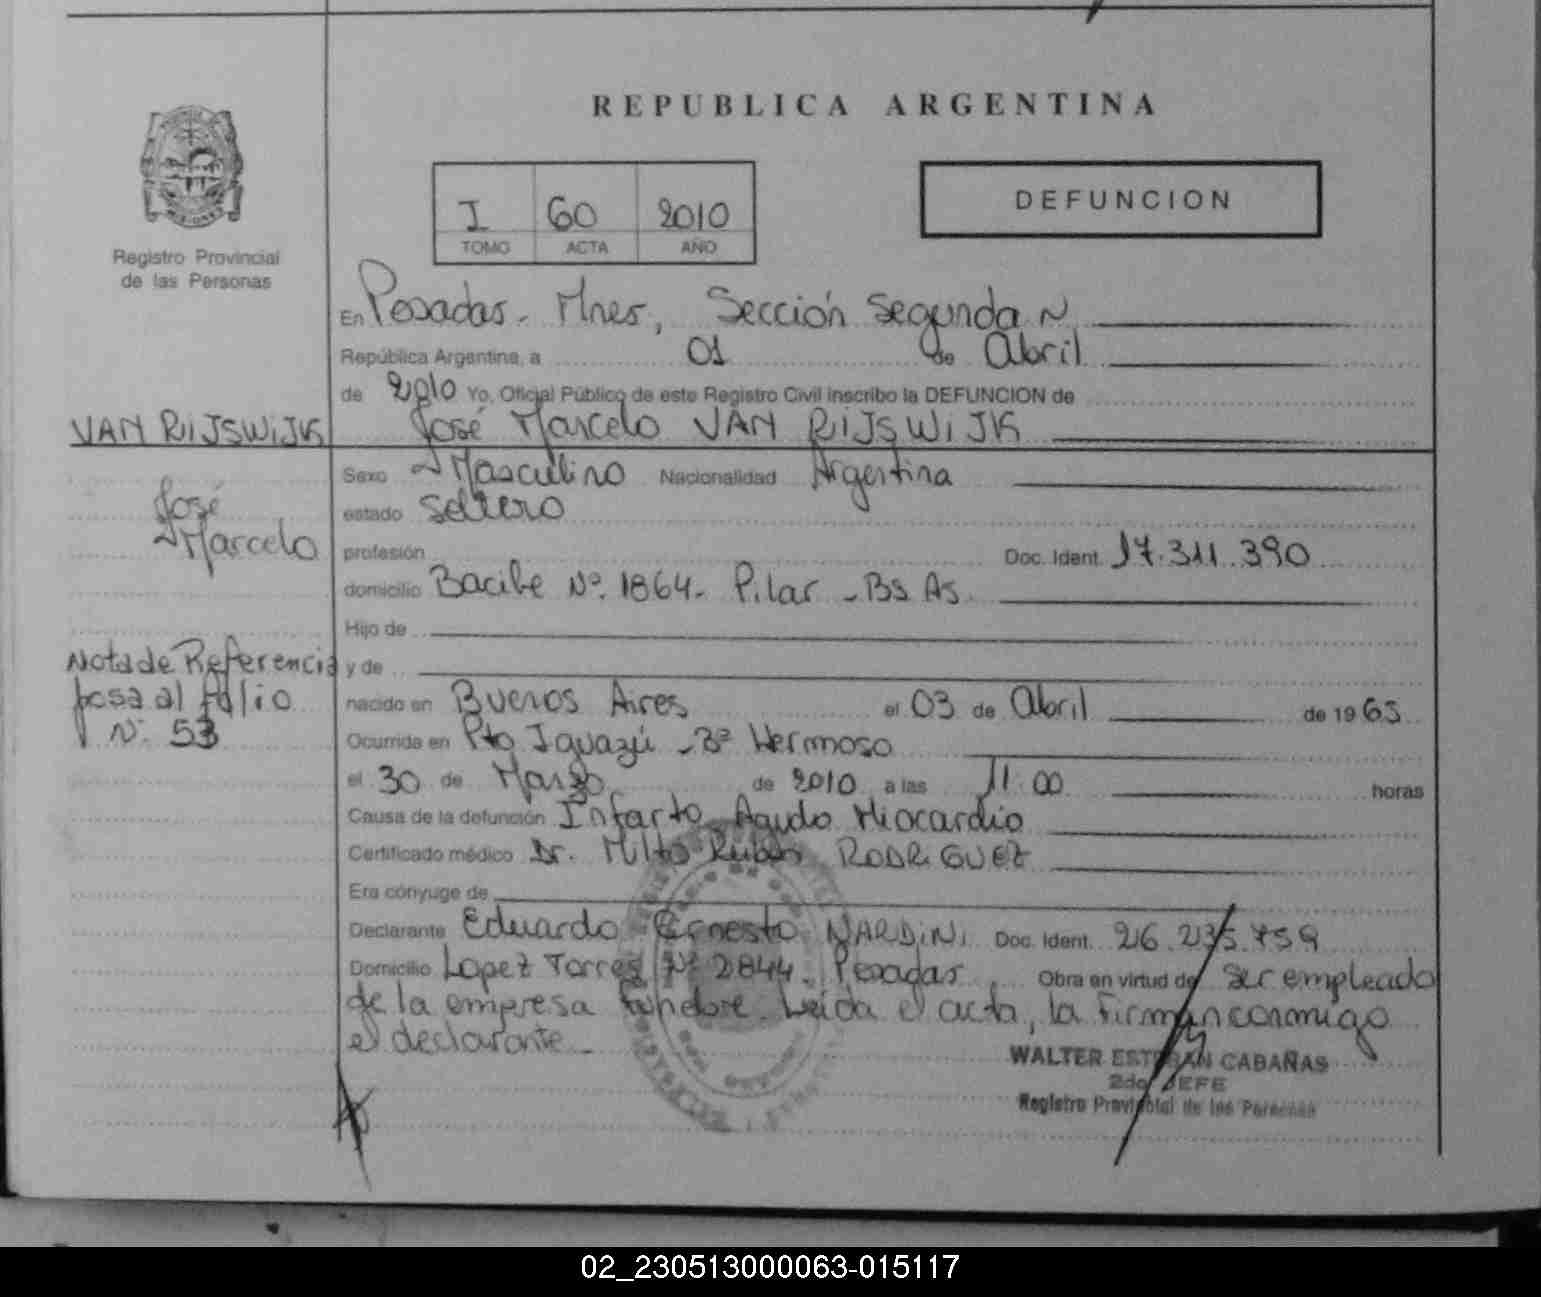 REPUBLICA ARGENTINA
I 60 2010
TOMO ACTA AÑO
DEFUNCION
Registro Provincial
de las Personas
En Posadas - Mnes, Sección Segunda N
República Argentina, a 01 de Abril
de 2010 Yo, Oficial Público de este Registro Civil inscribo la DEFUNCION de
José Marcelo VAN RIJSWIJK
VAN RIJSWIJK
José
Marcelo
Nota de Referencia
pasa al folio
Nº 53
Sexo Masculino Nacionalidad Argentina
estado Soltero
profesión Doc. Ident. 17.311.390
domicilio Bacile Nº 1864 - Pilar - Bs As
Hijo de
y de
nacido en Buenos Aires el 03 de Abril de 1965
Ocurrida en Pto Iguazú - Bº Hermoso
el 30 de Marzo de 2010 a las 11:00 horas
Causa de la defunción Infarto Agudo Miocardio
Certificado médico Dr. Milto Rubén RODRIGUEZ
Era cónyuge de
Declarante Eduardo Ernesto NARDINI Doc. Ident. 26.235.759
Domicilio Lopez Torres Nº 2844 - Posadas Obra en virtud de ser empleado
de la empresa fúnebre. Leída el acta, la firman conmigo
el declarante -
WALTER ESTEBAN CABAÑAS
2do JEFE
Registro Provincial de las Personas
02_230513000063-015117